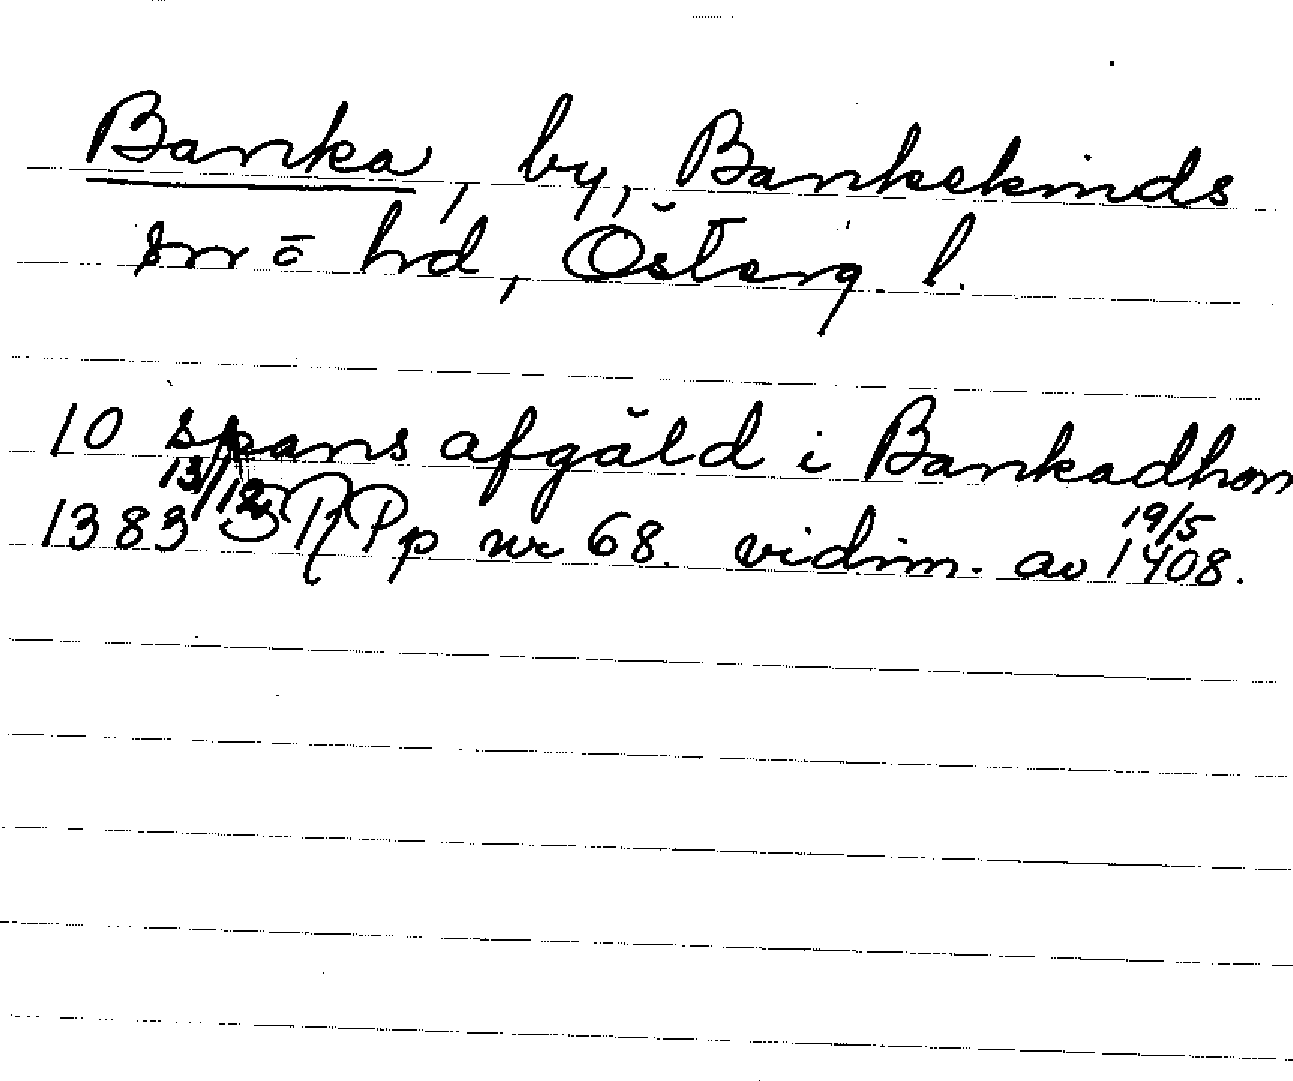 Banka, by, Bankekinds
sn o hd, Österg. l.
10 spans afgäld i Bankadhom
1383 13/12 RPp nr 68. vidim. av 19/5 1408.